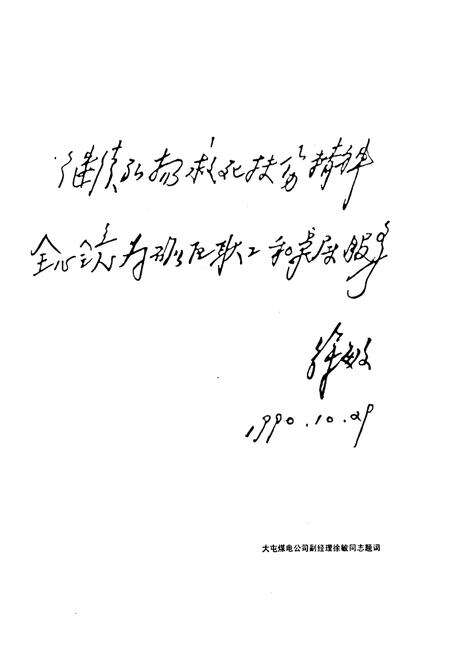 继续弘扬救死扶伤精神
全心全意为矿区职工和家属服务
徐敏
1990.10.29
大屯煤电公司副经理徐敏同志题词